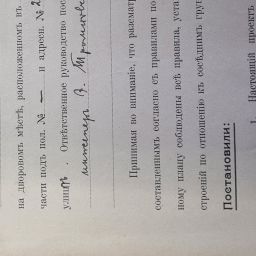 на дворовомъ мѣстѣ, расположенномъ въ
части подъ пол. № — и адресн. № 2
улицѣ. Отвѣтственное руководство пос
инженеръ В.
Принимая во вниманіе, что разсматр
составленнымъ согласно съ правилами по
ному плану соблюдены всѣ правила, уста
строеній по отношенію къ сосѣднимъ гру
Постановили:
1. Настоящій проектъ